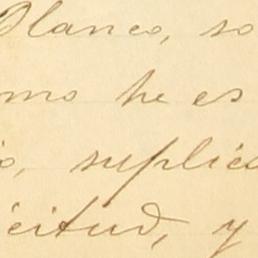 Blanco, so
mo he es
o, suplica
icitud, y